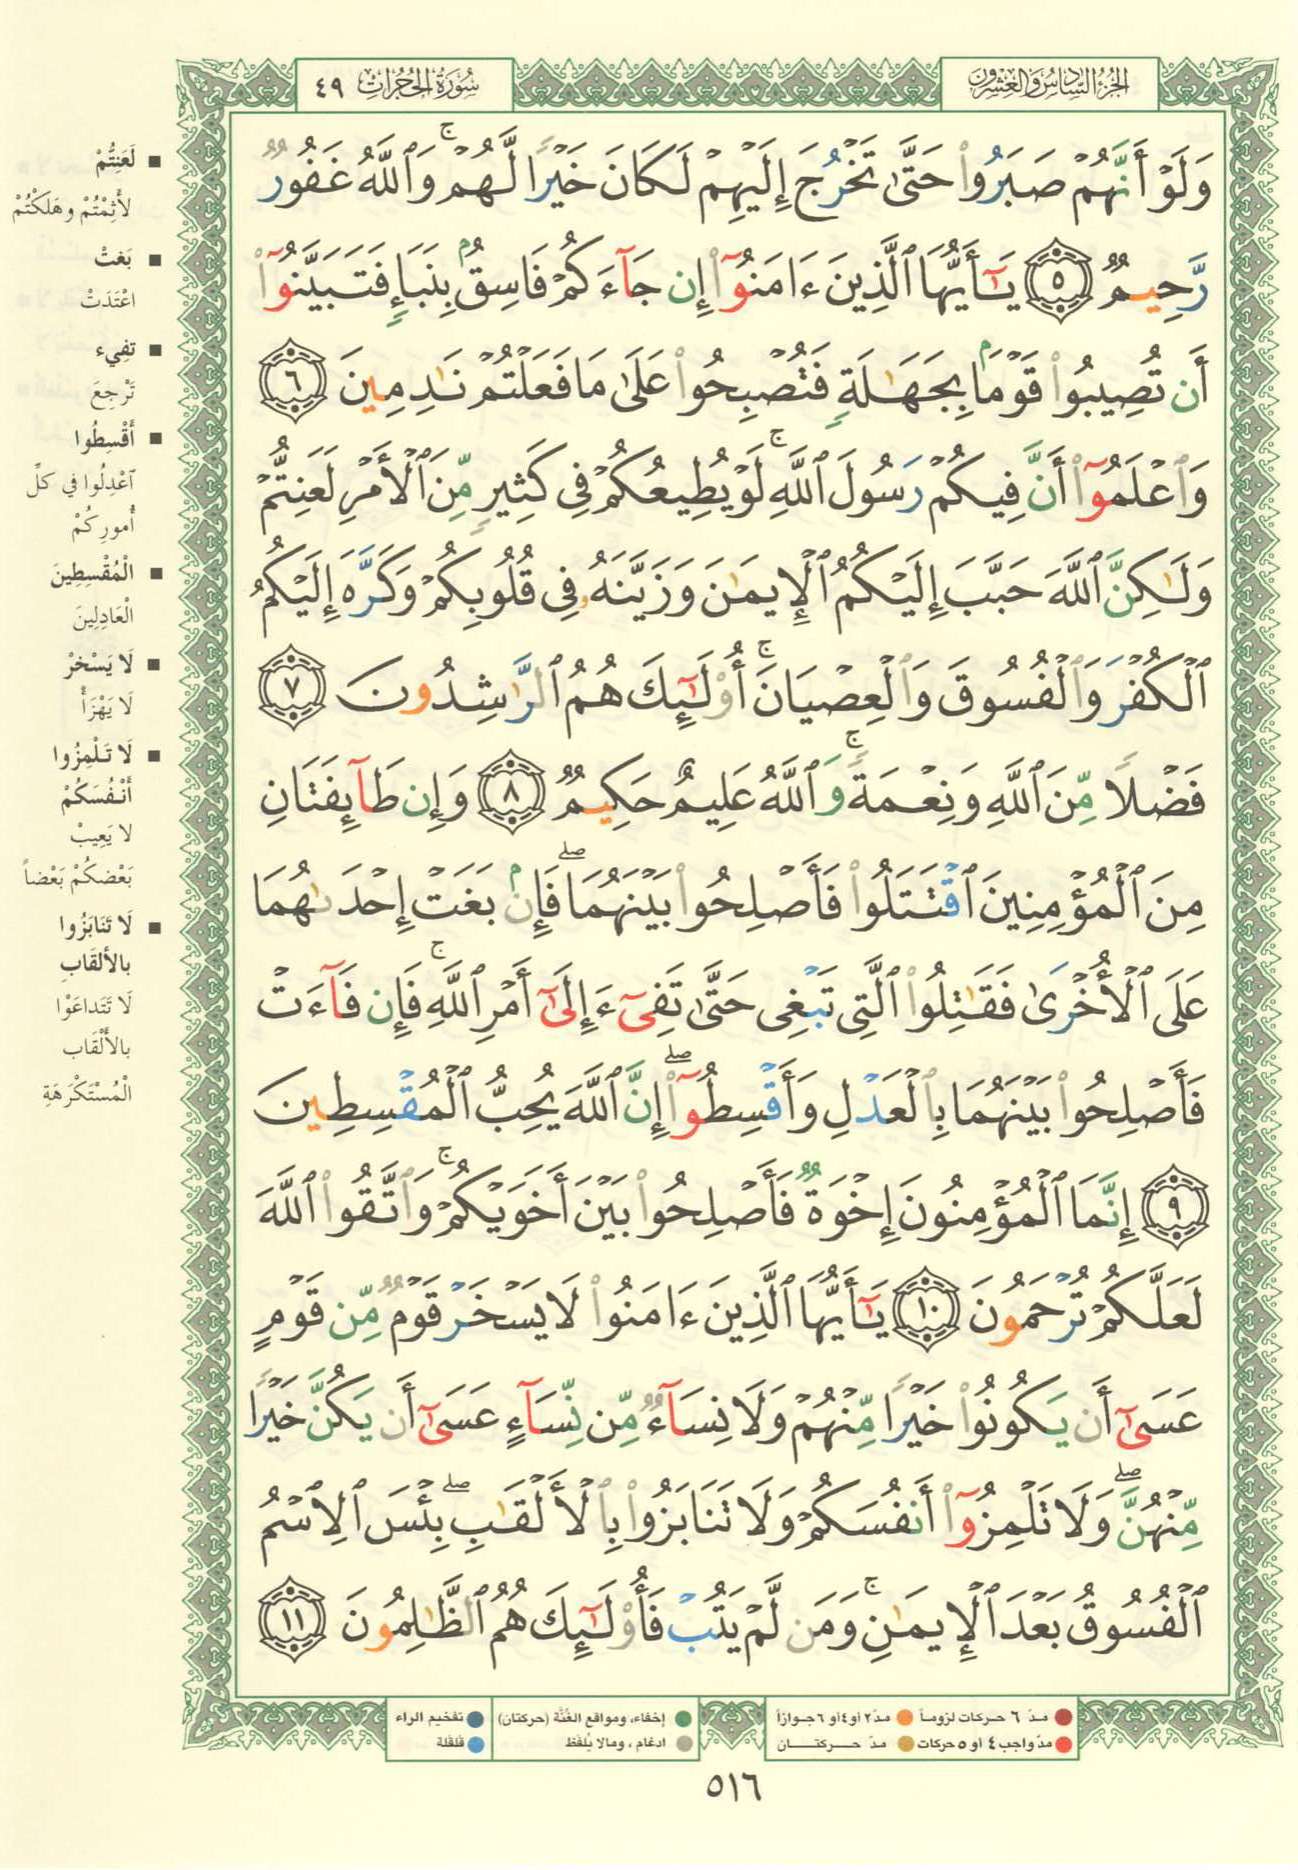 الجزء السادس والعشرون
سورة الحجرات ٤٩
وَلَوْ أَنَّهُمْ صَبَرُوا۟ حَتَّىٰ تَخْرُجَ إِلَيْهِمْ لَكَانَ خَيْرًا لَّهُمْ ۚ وَٱللَّهُ غَفُورٌ
رَّحِيمٌ ٥ يَـٰٓأَيُّهَا ٱلَّذِينَ ءَامَنُوٓا۟ إِن جَآءَكُمْ فَاسِقٌۢ بِنَبَإٍ فَتَبَيَّنُوٓا۟
أَن تُصِيبُوا۟ قَوْمًۢا بِجَهَـٰلَةٍ فَتُصْبِحُوا۟ عَلَىٰ مَا فَعَلْتُمْ نَـٰدِمِينَ ٦
وَٱعْلَمُوٓا۟ أَنَّ فِيكُمْ رَسُولَ ٱللَّهِ ۚ لَوْ يُطِيعُكُمْ فِى كَثِيرٍ مِّنَ ٱلْأَمْرِ لَعَنِتُّمْ
وَلَـٰكِنَّ ٱللَّهَ حَبَّبَ إِلَيْكُمُ ٱلْإِيمَـٰنَ وَزَيَّنَهُۥ فِى قُلُوبِكُمْ وَكَرَّهَ إِلَيْكُمُ
ٱلْكُفْرَ وَٱلْفُسُوقَ وَٱلْعِصْيَانَ ۚ أُو۟لَـٰٓئِكَ هُمُ ٱلرَّٰشِدُونَ ٧
فَضْلًا مِّنَ ٱللَّهِ وَنِعْمَةً ۚ وَٱللَّهُ عَلِيمٌ حَكِيمٌ ٨ وَإِن طَآئِفَتَانِ
مِنَ ٱلْمُؤْمِنِينَ ٱقْتَتَلُوا۟ فَأَصْلِحُوا۟ بَيْنَهُمَا ۖ فَإِنۢ بَغَتْ إِحْدَىٰهُمَا
عَلَى ٱلْأُخْرَىٰ فَقَـٰتِلُوا۟ ٱلَّتِى تَبْغِى حَتَّىٰ تَفِىٓءَ إِلَىٰٓ أَمْرِ ٱللَّهِ ۚ فَإِن فَآءَتْ
فَأَصْلِحُوا۟ بَيْنَهُمَا بِٱلْعَدْلِ وَأَقْسِطُوٓا۟ ۖ إِنَّ ٱللَّهَ يُحِبُّ ٱلْمُقْسِطِينَ
٩ إِنَّمَا ٱلْمُؤْمِنُونَ إِخْوَةٌ فَأَصْلِحُوا۟ بَيْنَ أَخَوَيْكُمْ ۚ وَٱتَّقُوا۟ ٱللَّهَ
لَعَلَّكُمْ تُرْحَمُونَ ١٠ يَـٰٓأَيُّهَا ٱلَّذِينَ ءَامَنُوا۟ لَا يَسْخَرْ قَوْمٌ مِّن قَوْمٍ
عَسَىٰٓ أَن يَكُونُوا۟ خَيْرًا مِّنْهُمْ وَلَا نِسَآءٌ مِّن نِّسَآءٍ عَسَىٰٓ أَن يَكُنَّ خَيْرًا
مِّنْهُنَّ ۖ وَلَا تَلْمِزُوٓا۟ أَنفُسَكُمْ وَلَا تَنَابَزُوا۟ بِٱلْأَلْقَـٰبِ ۖ بِئْسَ ٱلِٱسْمُ
ٱلْفُسُوقُ بَعْدَ ٱلْإِيمَـٰنِ ۚ وَمَن لَّمْ يَتُبْ فَأُو۟لَـٰٓئِكَ هُمُ ٱلظَّـٰلِمُونَ ١١
■ لَعَنِتُّمْ
لأَثِمْتُمْ وهَلَكْتُمْ
■ بَغتْ
اعْتَدَتْ
■ تفِيء
تَرْجِعَ
■ أَقْسِطُوا
آعْدِلُوا في كلِّ
أُمورِكُمْ
■ الْمُقْسِطِينَ
الْعَادِلِينَ
■ لَا يَسْخرْ
لَا يَهْزَأْ
■ لَا تَلْمِزُوا
أَنْفُسَكُمْ
لا يَعِبْ
بَعْضكُمْ بَعْضاً
■ لَا تَنَابَزُوا
بالألقَابِ
لَا تَتَداعَوْا
بالأَلْقَاب
الْمُسْتَكْرَهَةِ
مدّ ٦ حركات لزوماً مدّ ٢ أو ٤ أو ٦ جوازاً
مدّ واجب ٤ أو ٥ حركات مدّ حركتان
إخفاء، ومواقع الغُنَّة (حركتان)
ادغام ، ومالا يُلفَظ
تفخيم الراء
قلقلة
٥١٦